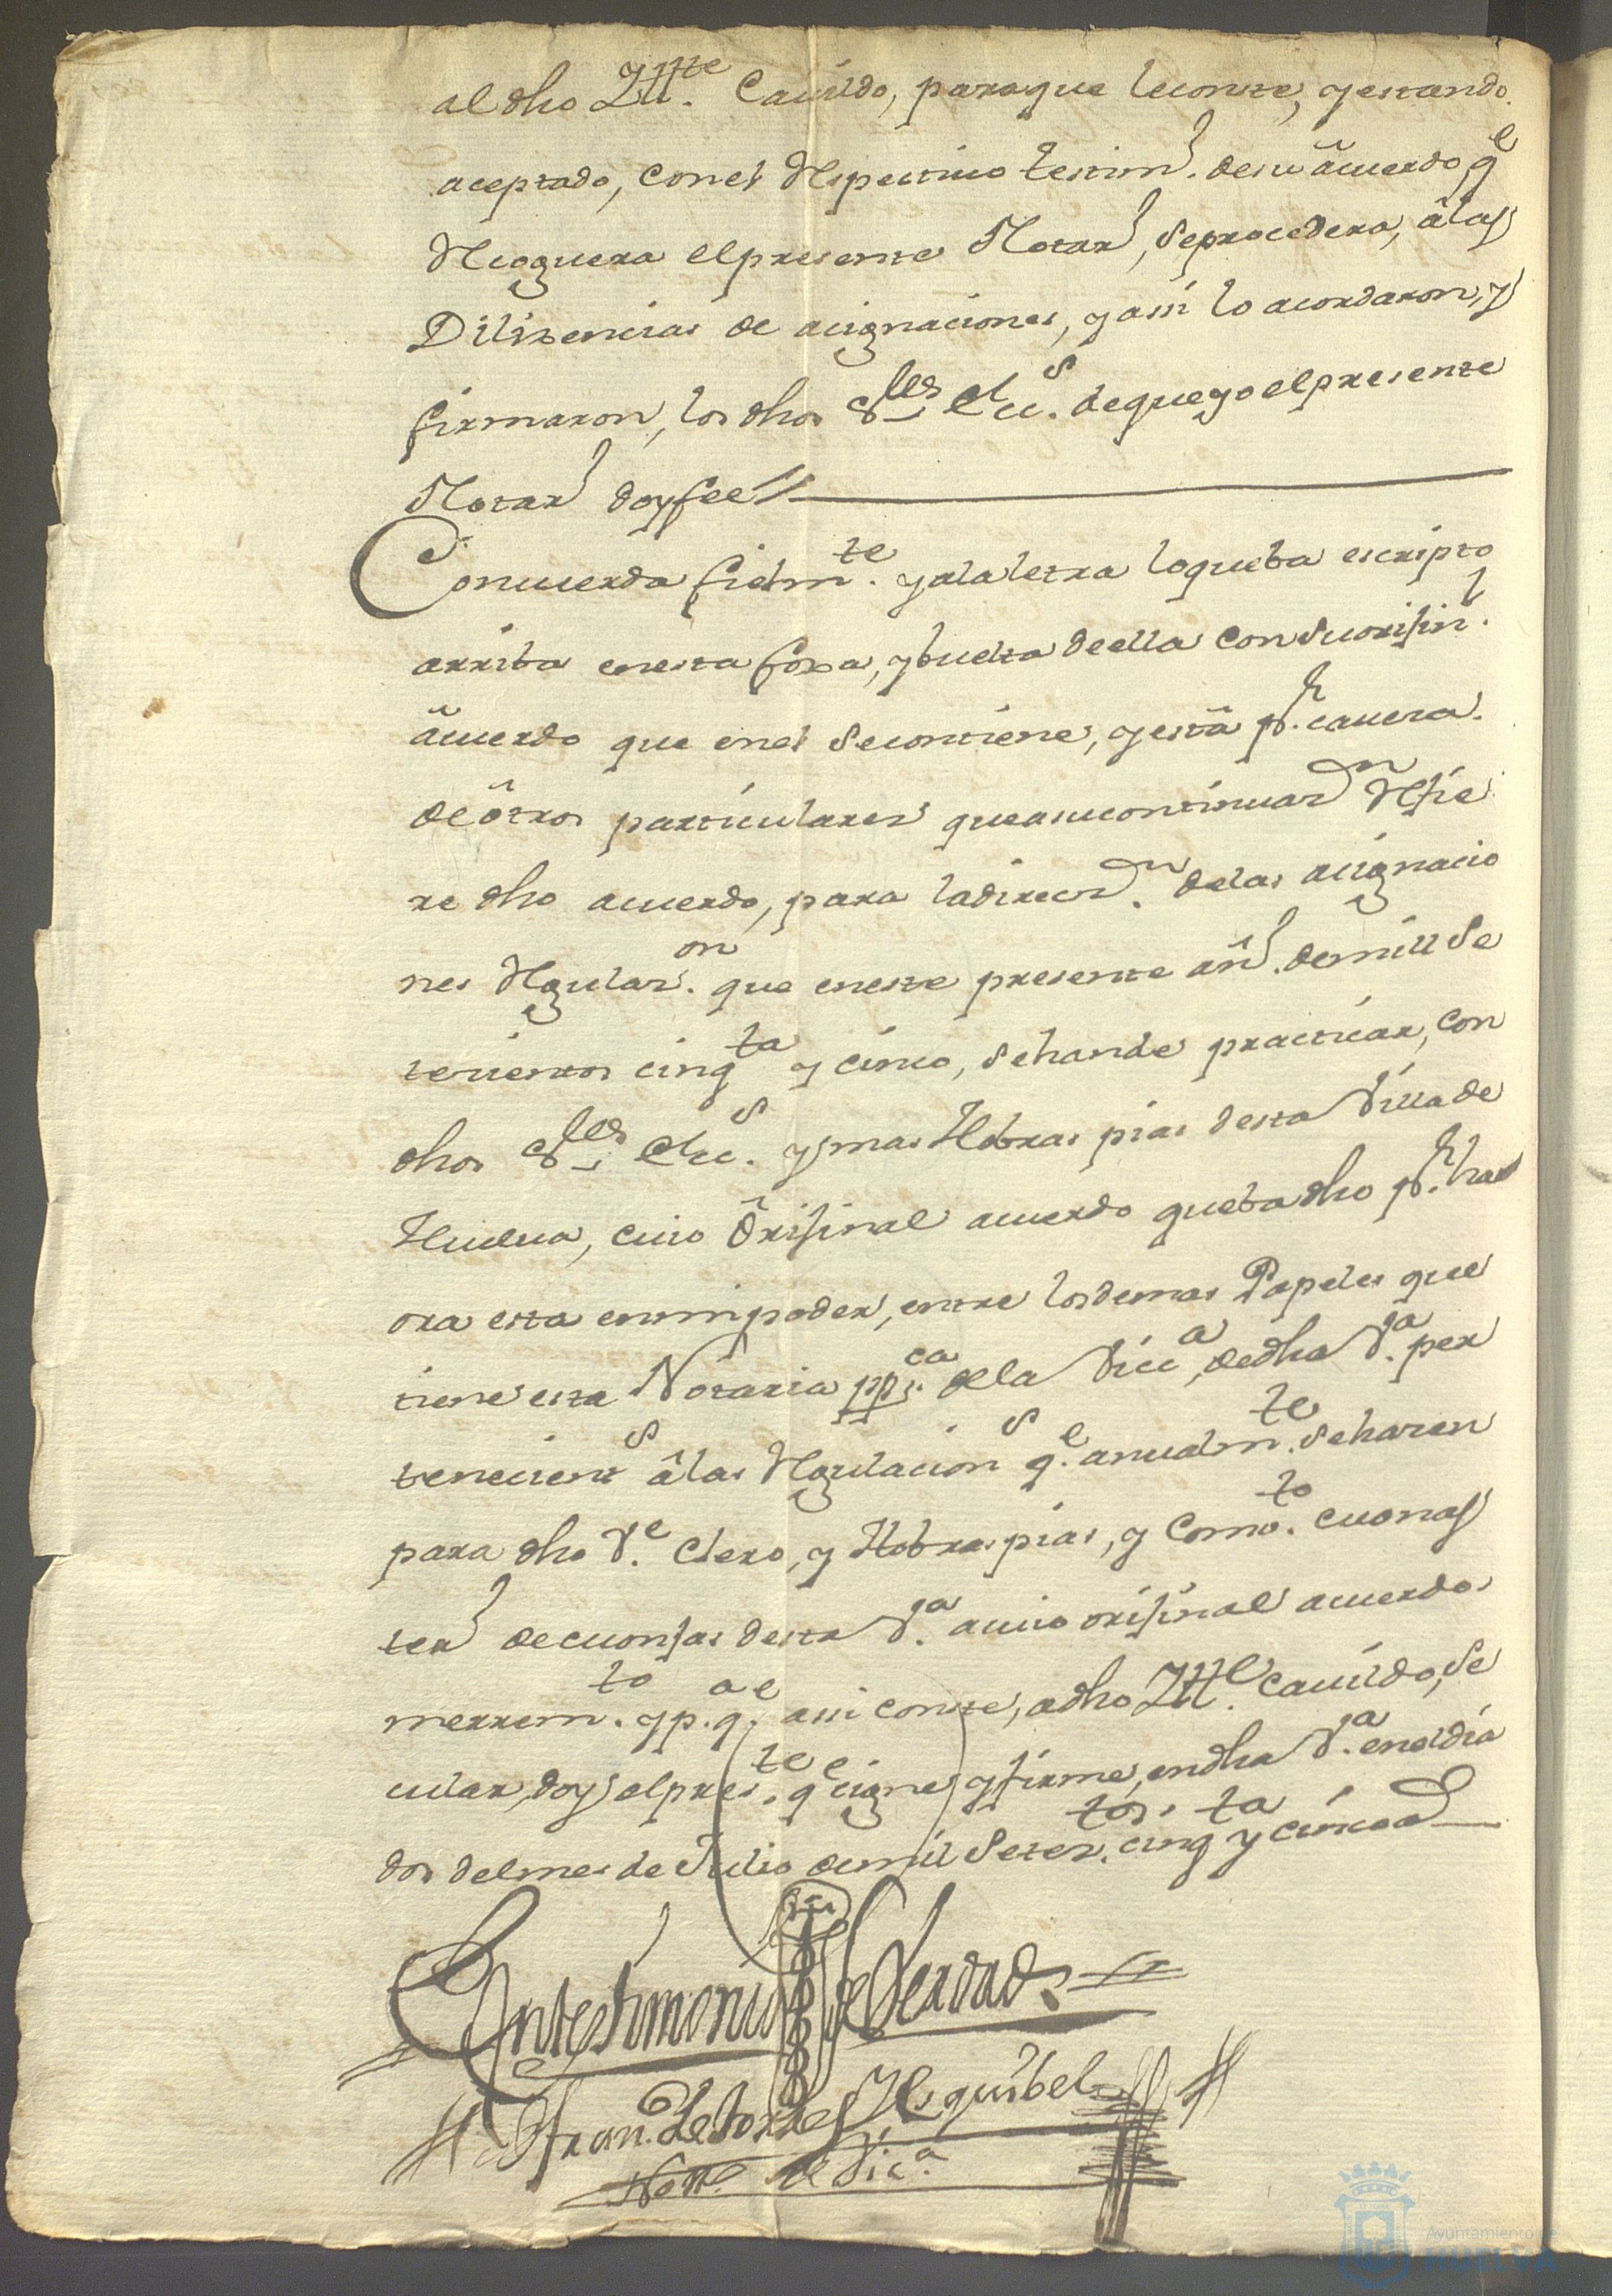 al dho Ylltte. Cavildo, para que le conste, y estando
aceptado, con el Respectivo testim.º de su âcuerdo q.e
Recoguera el presente Notar.º, se procedera, â las
Dilixencias de acignaciones, y assi lo acordaron, y
firmaron, los dhos SS.res Ecc.s de que yo el presente
Notar.º doy fee //
Concuerda fielm.te y a la letra lo que ba escripto
arriba en esta foxa, y buelta de ella con su orijin.l
âcuerdo que en el se contiene, y estâ p.r cavesa
de ôtros particulares que a su continuaz.n Refie
re dho acuerdo, para la direcz.n de las acignacio
nes Regulaz.on que en este presente añ.º de mill Se
tecientos cinq.ta y cinco, se han de practicar, con
dhos SS.res Ecc.s y mas Hobras pias desta Villa de
Huelva, cuio Ôrijinal acuerdo que ba dho p.r haª
ora esta en mi poder, entre los demas Papeles que
tiene esta Notaria pp.ca de la Vicc.a, de dha V.a per
tenecient.s â las Regulacion.s q.e anualm.te se hasen
para dho V.e Clero, y Hobras pias, y como.to cuonas
ter.º de cuonjas desta V.a a cuio orijinal acuerdo
me rrem.to y p.a q.e assi conste, a dho Yltt.e Cavildo, Se
cular, doy el pres.te q.e signe, y firme, en dha V.a en el dia
dos del mes de Julio de mil Setez.tos cinq.ta y cinco a
En testimonio de Verdad
Fran.co de Torres Y Esquibel
Nott.º de Vic.a
Ayuntamiento de
HUELVA